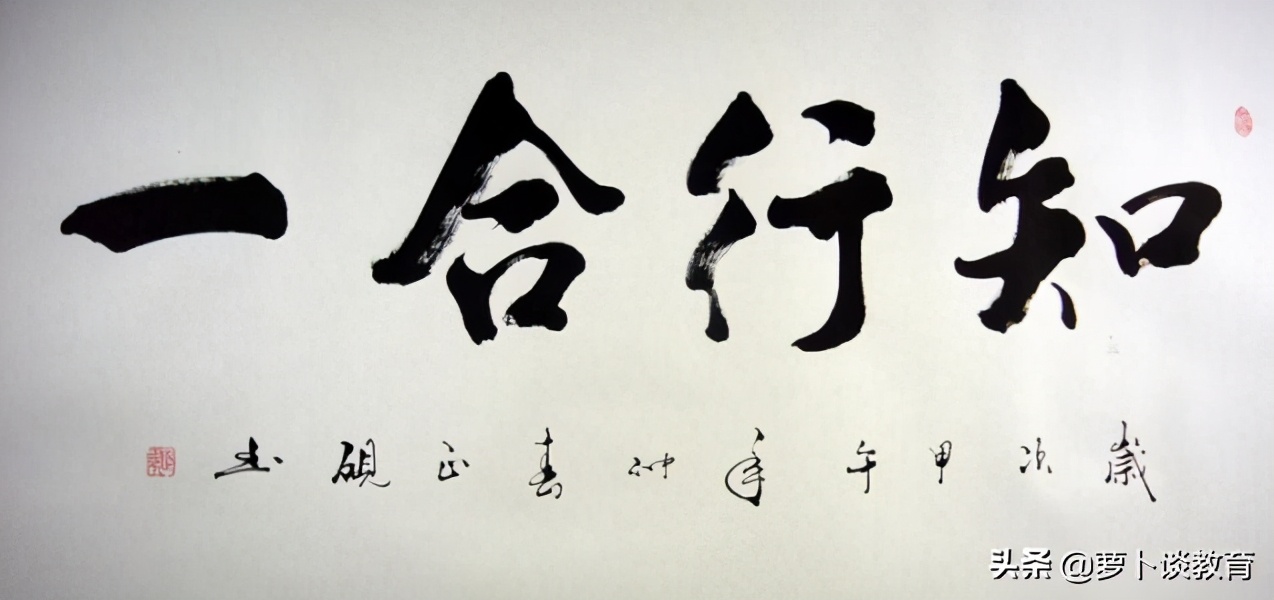 知行合一
岁次甲午年仲春正砚书
头条 @萝卜谈教育